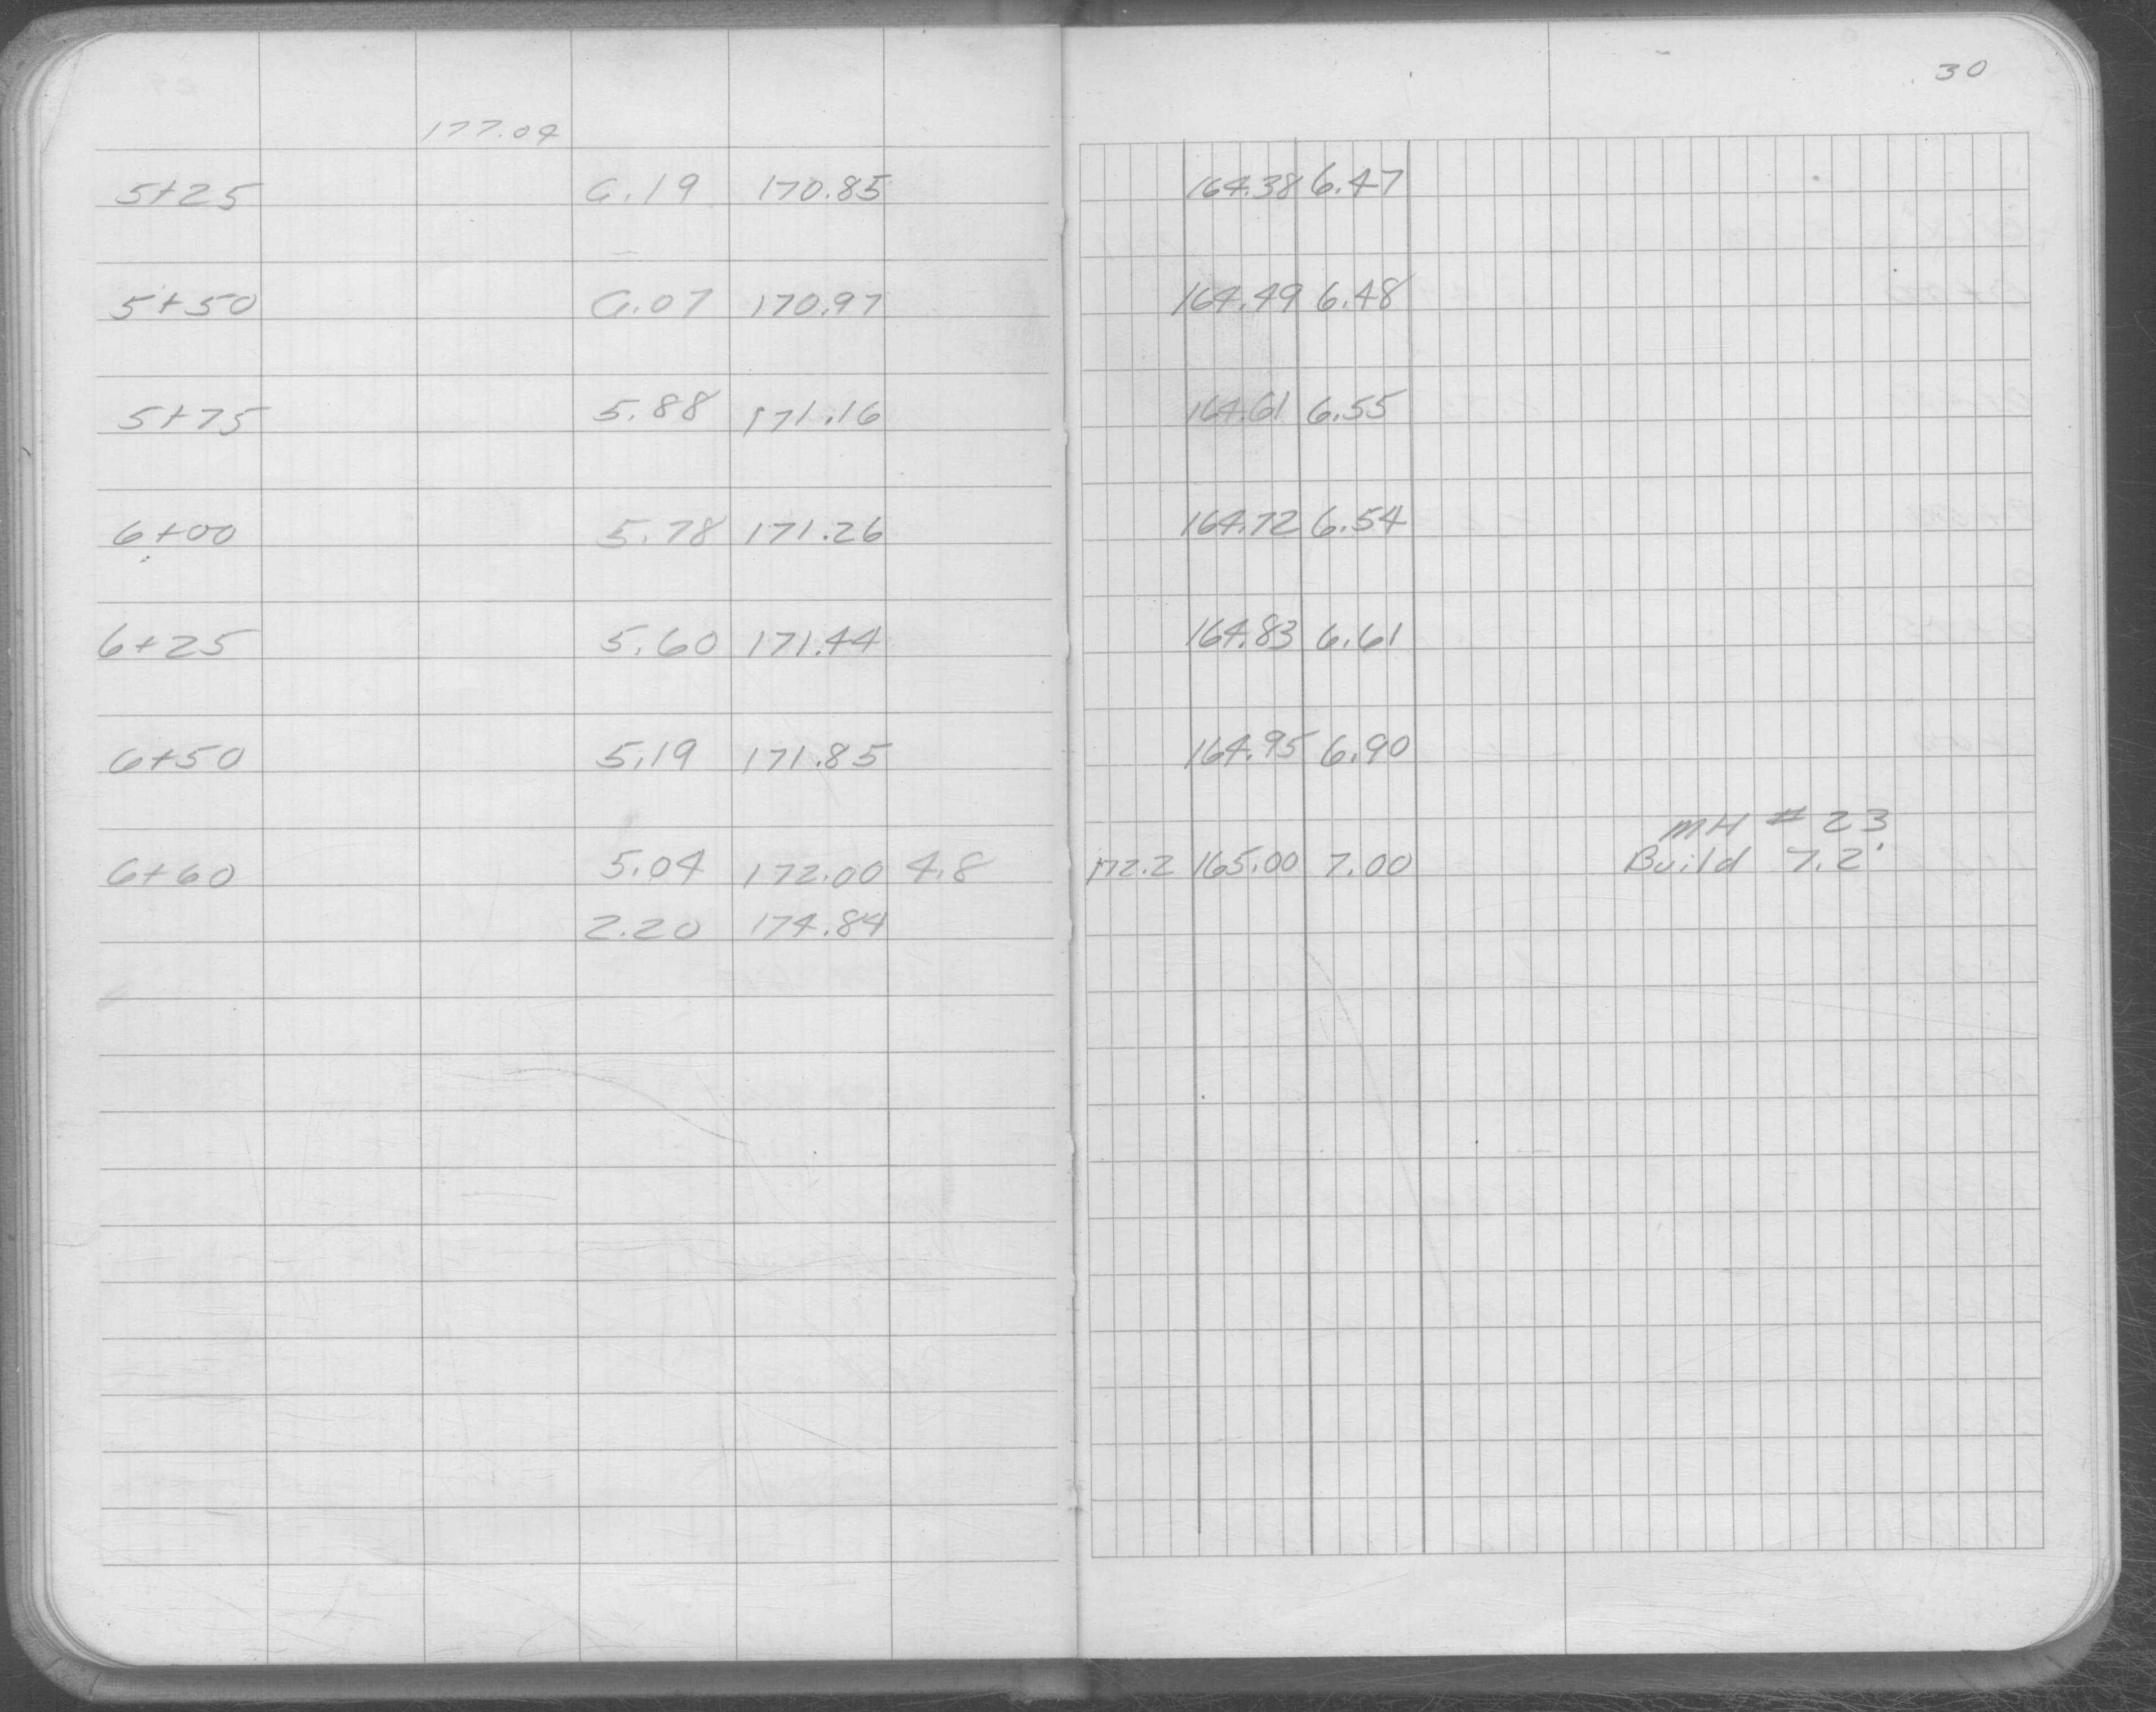 30
177.04
5+25 6.19 170.85 164.38 6.47
5+50 6.07 170.97 164.49 6.48
5+75 5.88 171.16 164.61 6.55
6+00 5.78 171.26 164.72 6.54
6+25 5.60 171.44 164.83 6.61
6+50 5.19 171.85 164.95 6.90
MH # 23
6+60 5.04 172.00 4.8 172.2 165.00 7.00 Build 7.2'
2.20 174.84